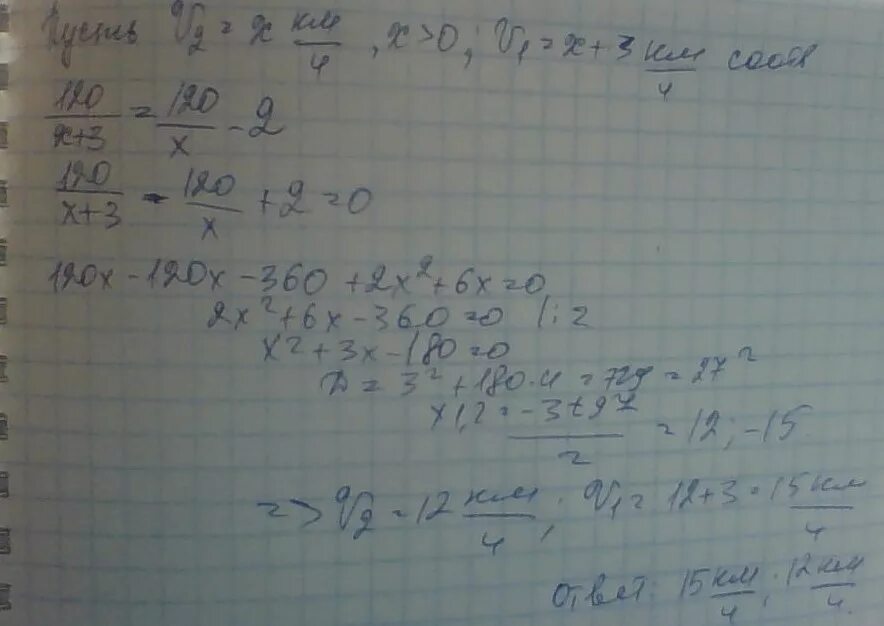 Пусть V₂ = x км/ч, x>0; V₁ = x+3 км/ч соотв
120/(x+3) = 120/x - 2
120/(x+3) - 120/x + 2 = 0
120x - 120x - 360 + 2x² + 6x = 0
2x² + 6x - 360 = 0 |:2
x² + 3x - 180 = 0
D = 3² + 180·4 = 729 = 27²
x1,2 = (-3±27)/2 = 12; -15
=> V₂ = 12 км/ч; V₁ = 12+3 = 15 км/ч
Ответ: 15 км/ч; 12 км/ч.